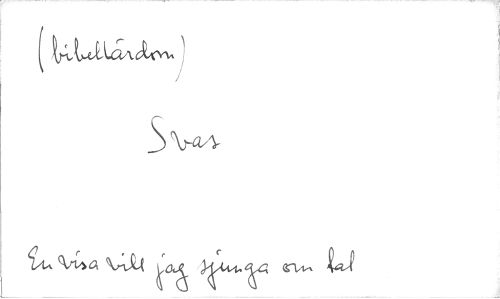 (bibellärdom)
Svas
En visa vill jag sjunga om tal